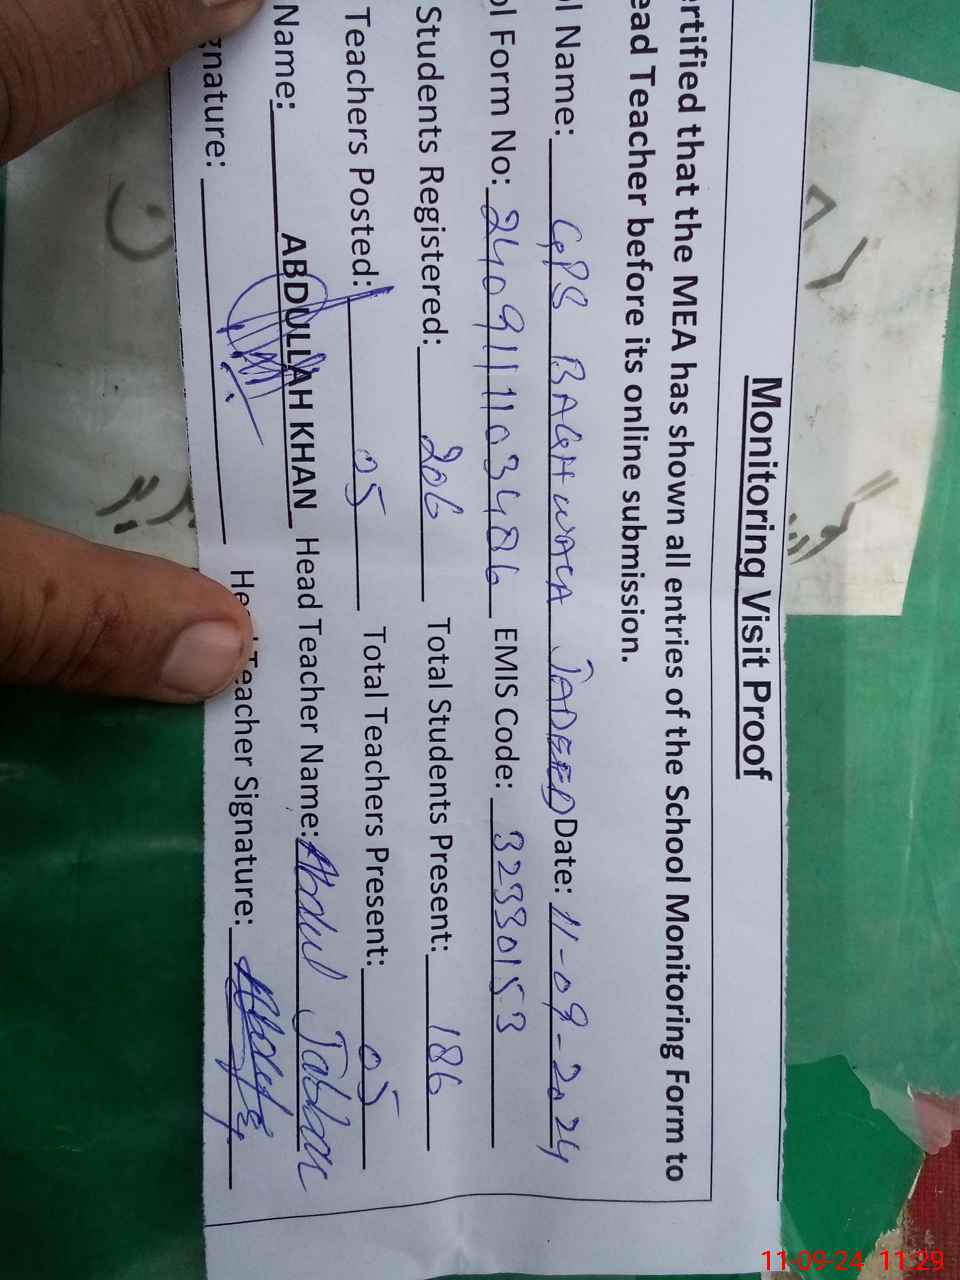 Monitoring Visit Proof
ertified that the MEA has shown all entries of the School Monitoring Form to
ead Teacher before its online submission.
ol Name: GPS BAGH WALA JADEED Date: 11-09-2024
ol Form No: 240911103486 EMIS Code: 32330153
Students Registered: 206 Total Students Present: 186
Teachers Posted: 05 Total Teachers Present: 05
Name: ABDULLAH KHAN Head Teacher Name: Abdul Jabbar
gnature: Head Teacher Signature:
11-09-24 11:29